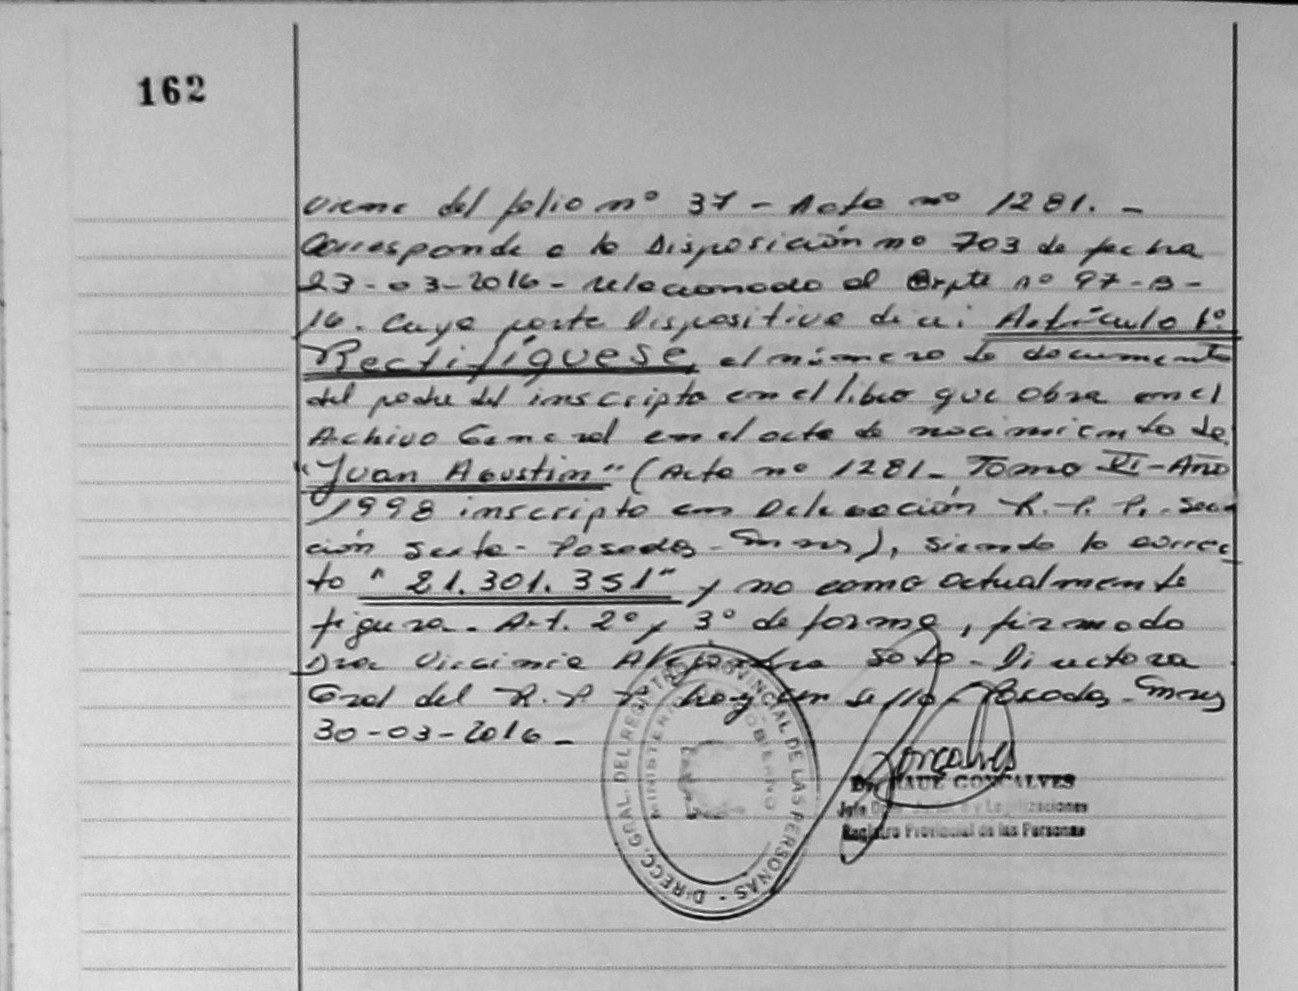 162
Viene del folio nº 37 - Acta nº 1281. -
Corresponde a la Disposición nº 703 de fecha
23-03-2016 - relacionado al Expte nº 97-B-
16. Cuya parte Dispositiva dice: Artículo 1º.
Rectifíquese, el número de documento
del padre del inscripto en el libro que obra en el
Archivo General en el acta de nacimiento de
"Juan Agustin" (Acta nº 1281 - Tomo VI - Año
1998 inscripto en Delegación R. P. P. - Sec
ción Sexta - Posadas - Mnes), siendo lo correc
to "21.301.351" y no como actualmente
figura. Art. 2º y 3º de forma, firmado
Dra Virginia Alejandra Soto - Directora
Gral del R. P. P. hay un sello - Posadas - Mnes
30-03-2016 -
DIRECC. GRAL. DEL REGISTRO PROVINCIAL DE LAS PERSONAS -
MINISTERIO GOBIERNO
Goncalves
Dr. RAUL GONCALVES
Jefe y Legalizaciones
Registro Provincial de las Personas